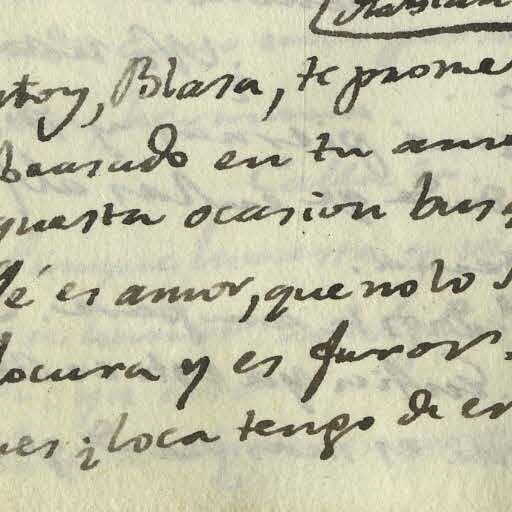 ntoy, Blasa, te prome
en tu amo
questa ocasion busq
es amor, que no lo s
locura y es furor.
ues ¿loca tengo de en